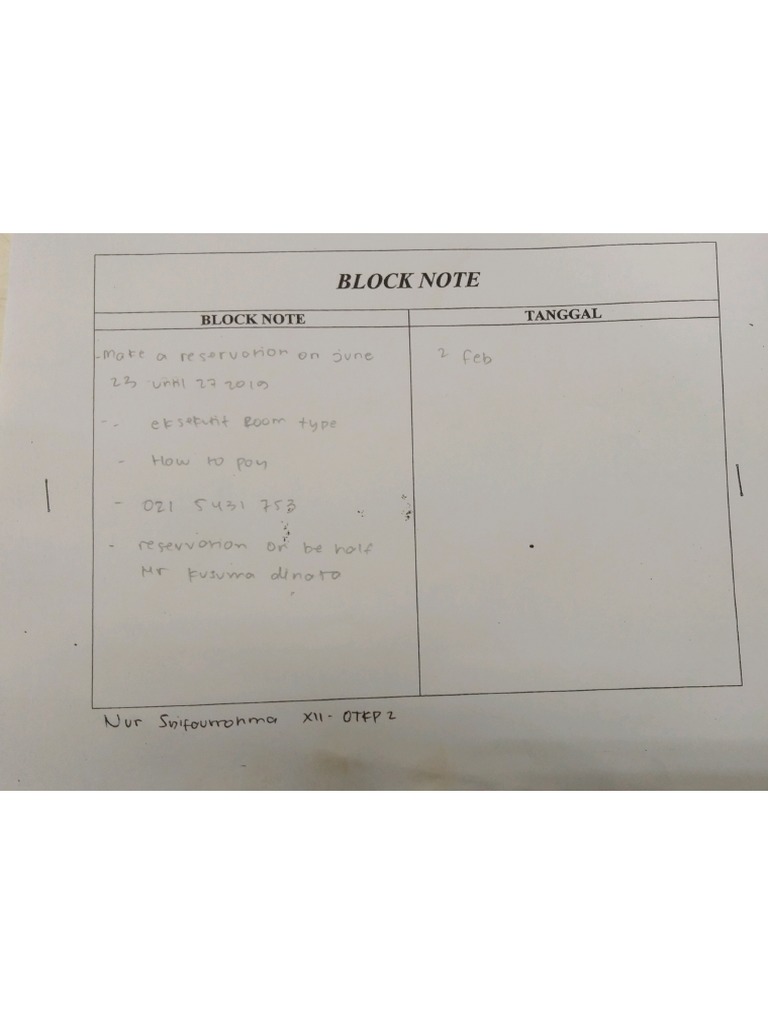 BLOCK NOTE
BLOCK NOTE
TANGGAL
- make a reservation on june
2 feb
23 until 27 2019
- eksekutif Room type
- How to pay
- 021 5431 753
- reservation on be half
Mr Kusuma dinato
Nur XII - OTKP 2